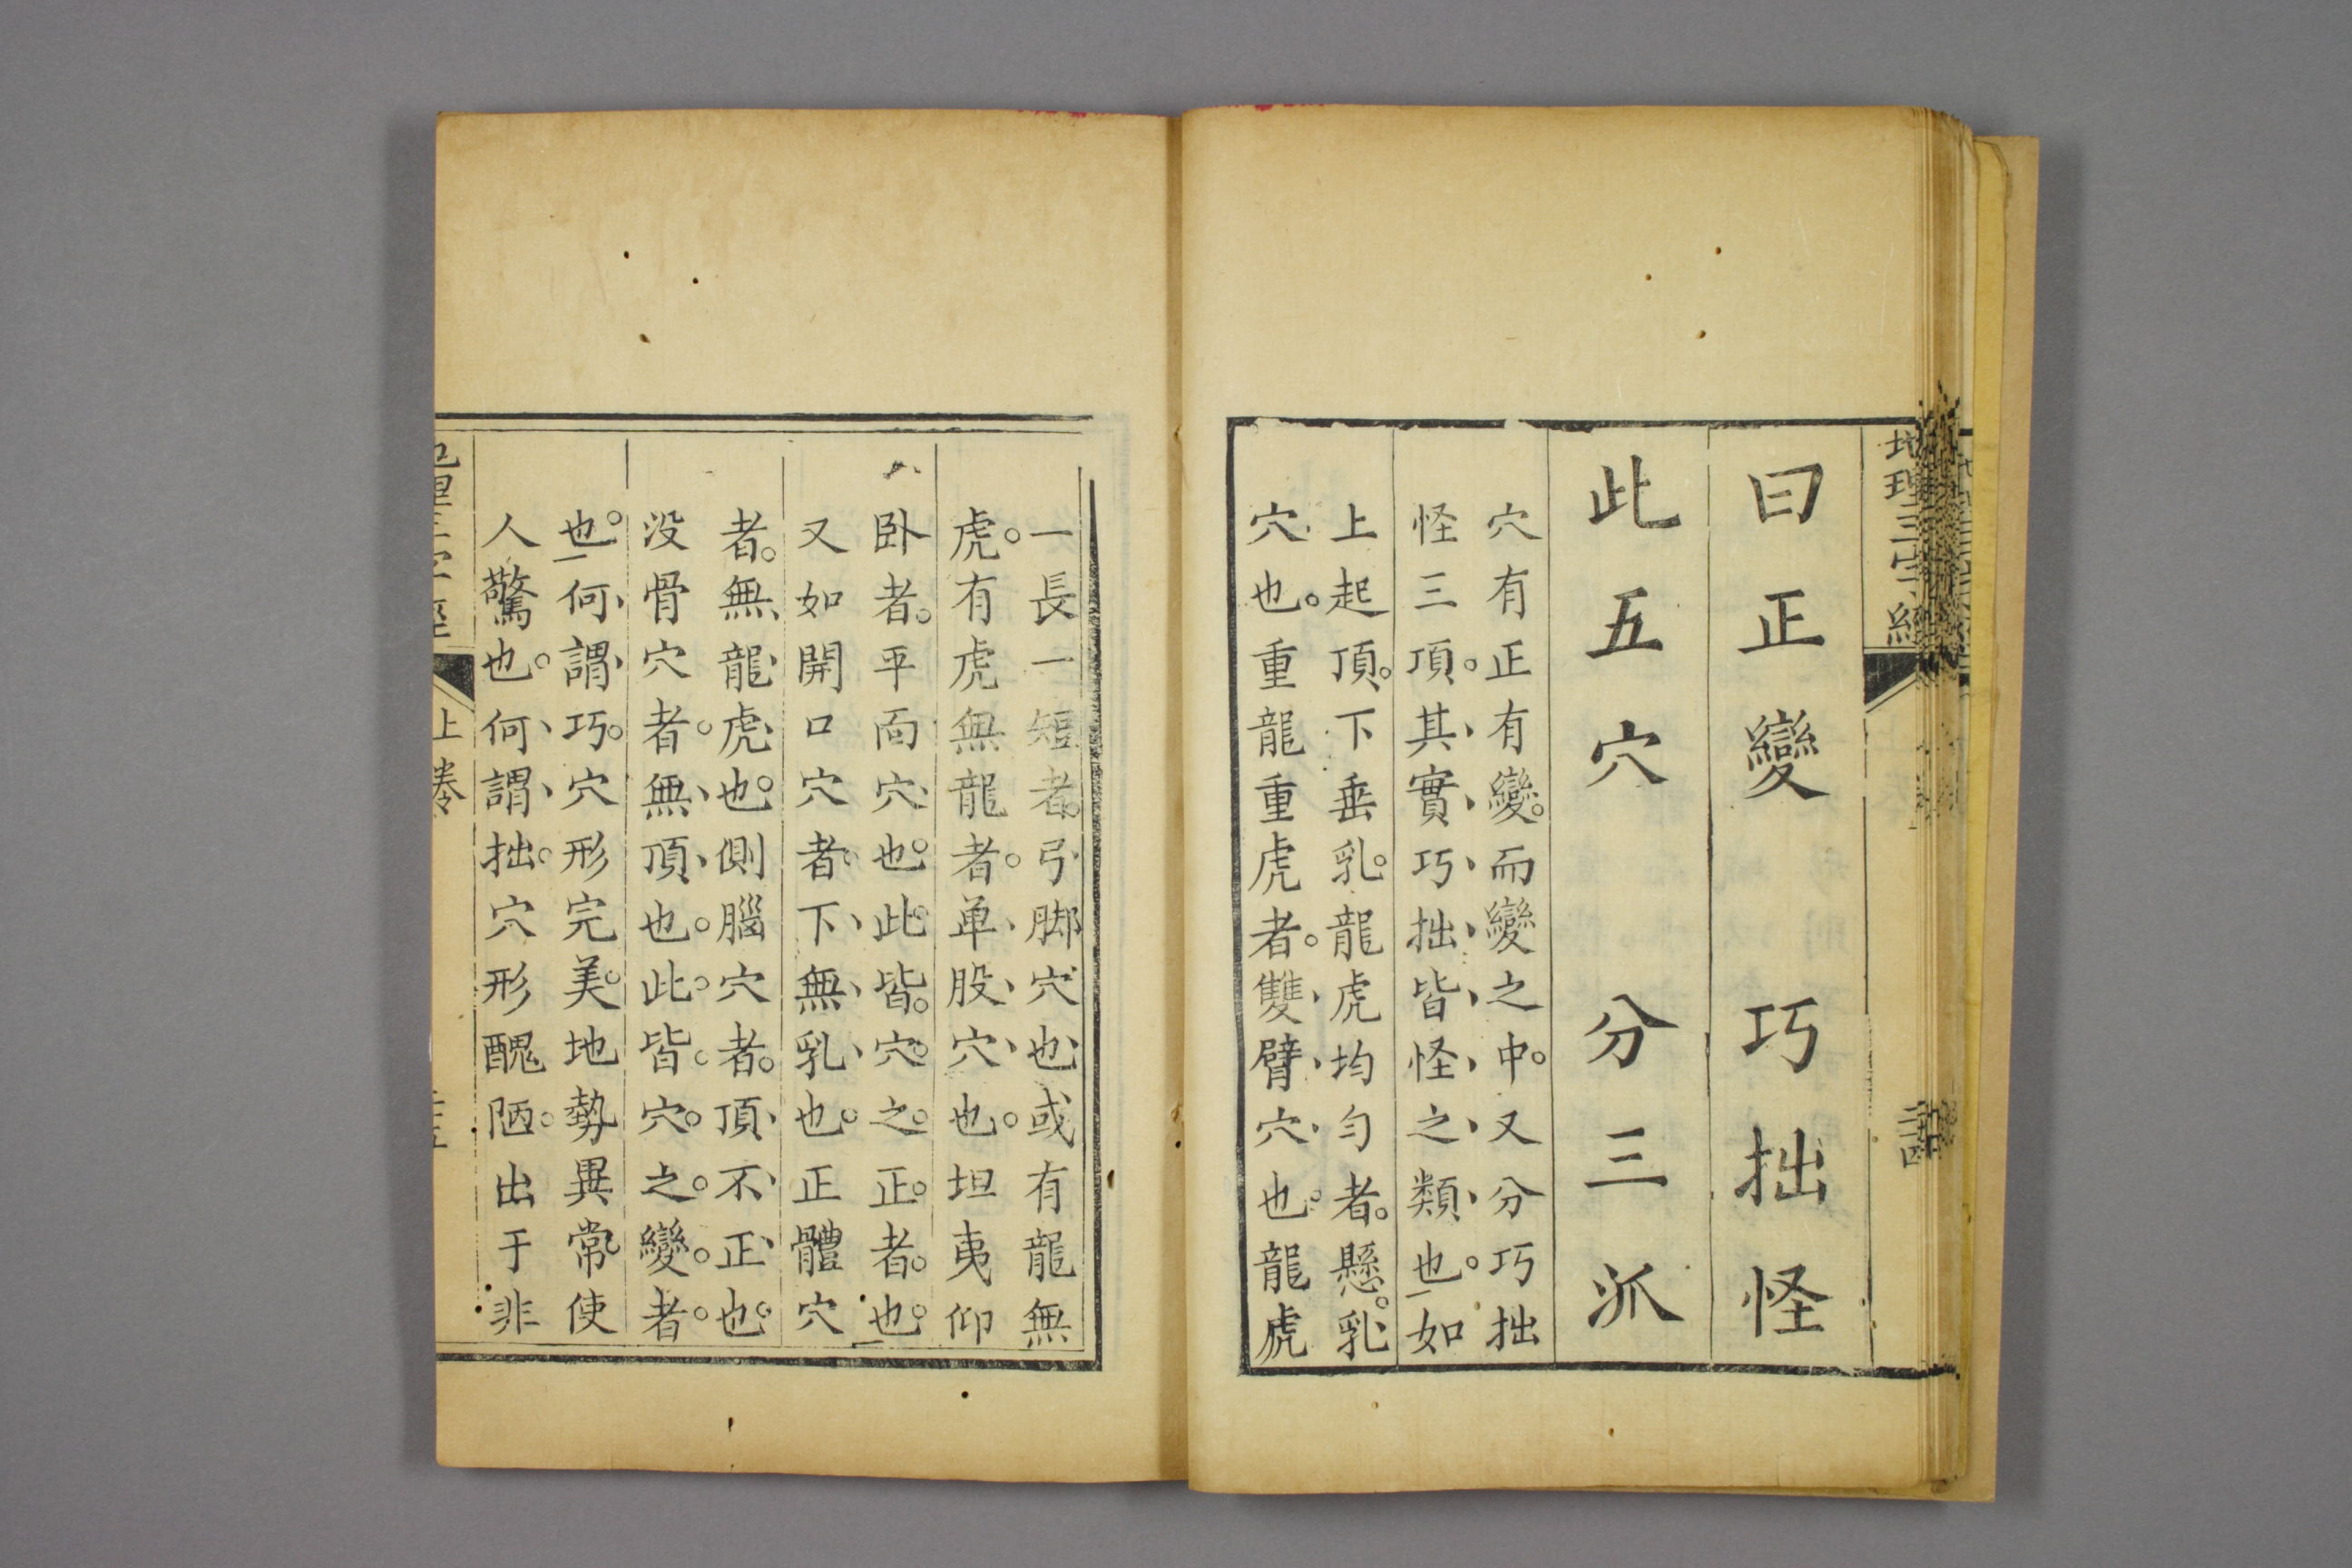 地理三字經
曰正變巧拙怪
此五穴分三派
穴有正有變。而變之中。又分巧拙
怪三項。其實巧拙皆怪之類也。如
上起頂。下垂乳。龍虎均勻者。懸乳
穴也。重龍重虎者。雙臂穴也。龍虎
一長一短者。弓脚穴也或有龍無
虎。有虎無龍者。单股穴也。坦夷仰
卧者。平面穴也。此皆穴之正者也。
又如開口穴者。下無乳也。正體穴
者。無龍虎也。側腦穴者。頂不正也。
没骨穴者。無頂也。此皆穴之變者
也。何謂巧。穴形完美。地勢異常。使
人驚也。何謂拙。穴形醜陋。出于非
上卷